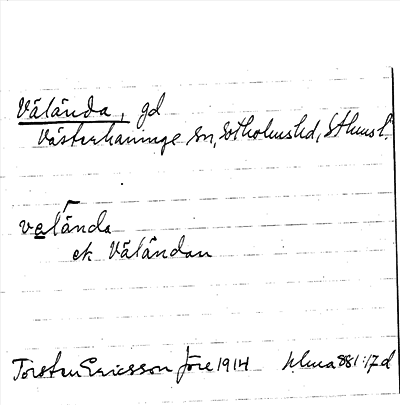 Väländа, gd
Västerhaninge sn, Sotholms hd, Sthms l.
velända
ek Väländan
Torsten Ericsson före 1914 Ulma 881:17 d